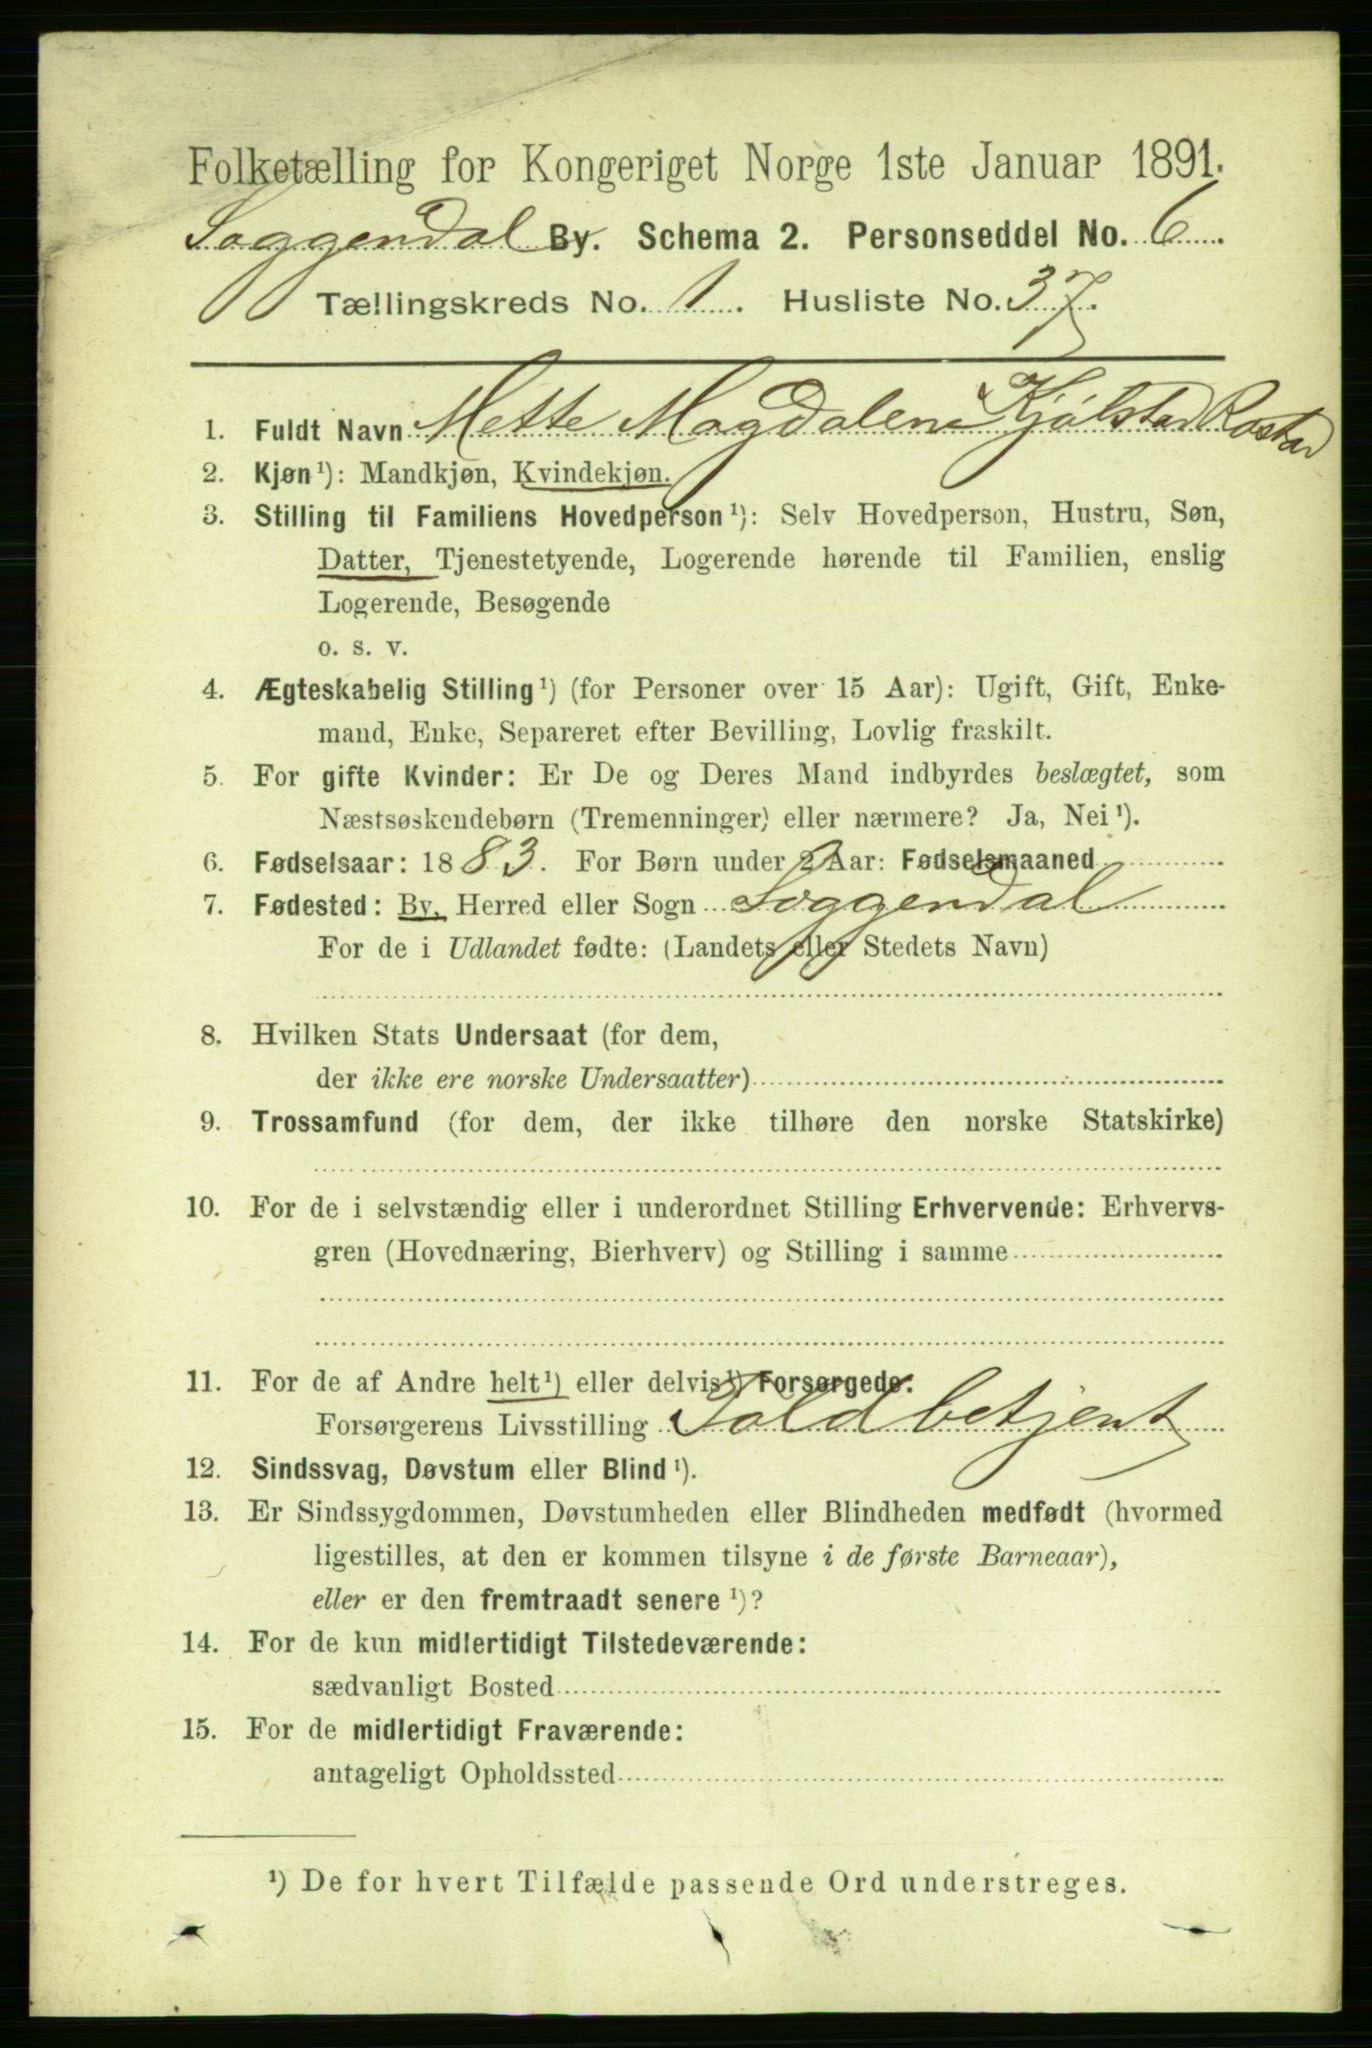 Folketælling for Kongeriget Norge 1ste Januar 1891.
Soggendal By. Schema 2. Personseddel No. 6
Tællingskreds No. 1. Husliste No. 37.
1. Fuldt Navn Mette Magdalene Kjølstad Rostad
2. Kjøn¹): Mandkjøn, Kvindekjøn.
3. Stilling til Familiens Hovedperson¹): Selv Hovedperson, Hustru, Søn,
Datter, Tjenestetyende, Logerende hørende til Familien, enslig
Logerende, Besøgende
o. s. v.
4. Ægteskabelig Stilling¹) (for Personer over 15 Aar): Ugift, Gift, Enke-
mand, Enke, Separeret efter Bevilling, Lovlig fraskilt.
5. For gifte Kvinder: Er De og Deres Mand indbyrdes beslægtet, som
Næstsøskendebørn (Tremenninger) eller nærmere? Ja, Nei¹).
6. Fødselsaar: 1883. For Børn under 2 Aar: Fødselsmaaned
7. Fødested: By, Herred eller Sogn Soggendal
For de i Udlandet fødte: (Landets eller Stedets Navn)
8. Hvilken Stats Undersaat (for dem,
der ikke ere norske Undersaatter)
9. Trossamfund (for dem, der ikke tilhøre den norske Statskirke)
10. For de i selvstændig eller i underordnet Stilling Erhvervende: Erhvervs-
gren (Hovednæring, Bierhverv) og Stilling i samme
11. For de af Andre helt¹) eller delvis¹) Forsørgede:
Forsørgerens Livsstilling Toldbetjent
12. Sindssvag, Døvstum eller Blind¹).
13. Er Sindssygdommen, Døvstumheden eller Blindheden medfødt (hvormed
ligestilles, at den er kommen tilsyne i de første Barneaar),
eller er den fremtraadt senere¹)?
14. For de kun midlertidigt Tilstedeværende:
sædvanligt Bosted
15. For de midlertidigt Fraværende:
antageligt Opholdssted
¹) De for hvert Tilfælde passende Ord understreges.